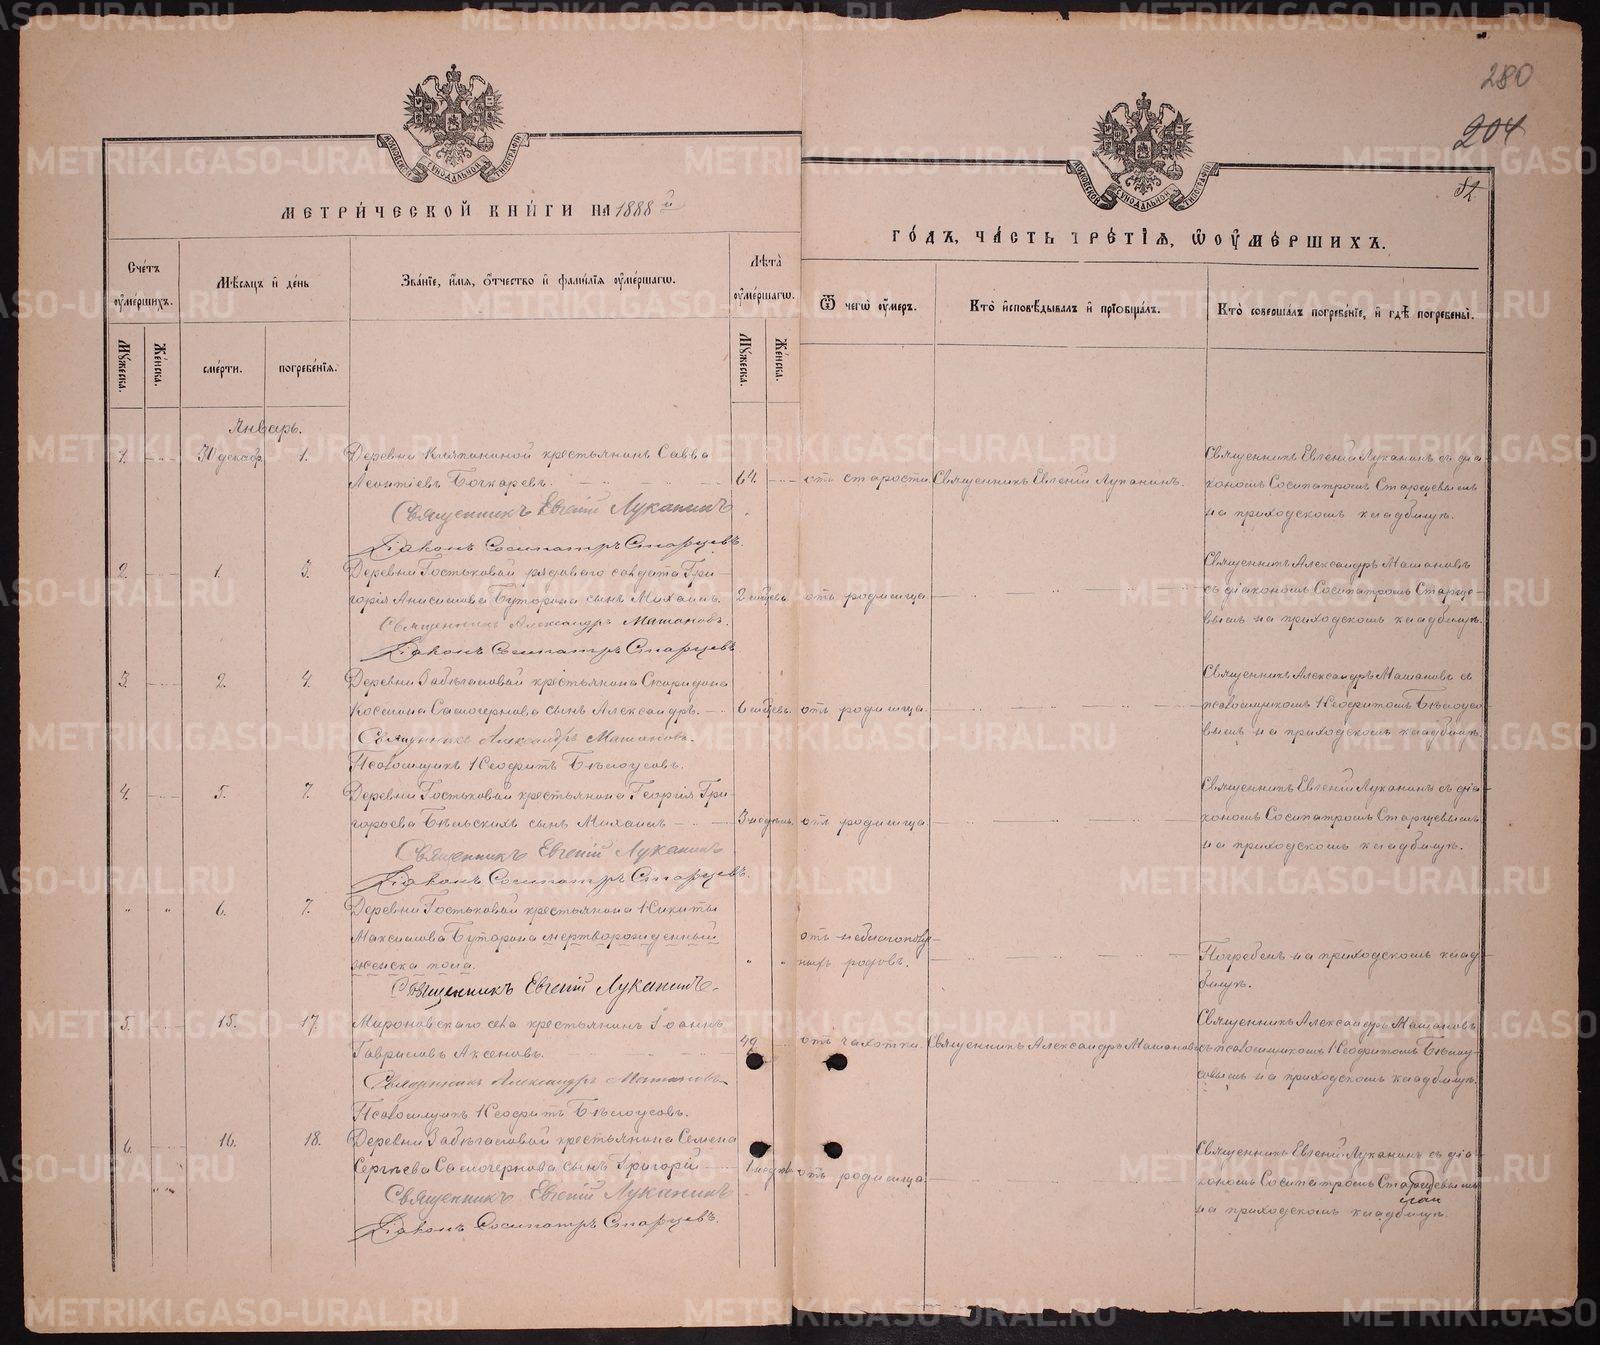 280
204
МЕТРИЧЕСКОЙ КНИГИ НА 1888 й
ГОДЪ, ЧАСТЬ ТРЕТІЯ, Ѡ ОУМЕРШИХЪ.
Счетъ оумершихъ.
Мѣсяцъ и день
Званіе, имя, отчество и фамилія оумершагѡ.
Лѣта оумершагѡ.
Ѿ чегѡ оумеръ.
Кто исповѣдывалъ и пріобщалъ.
Кто совершалъ погребеніе, и гдѣ погребены.
Мужеска.
Женска.
смерти.
погребенія.
Мужеска.
Женска.
Январь.
1. 30 декабр. 1. Деревни Кляпининой крестьянинъ Савва
Леонтіевъ Бочкаревъ. 64. отъ старости. Священникъ Евгеній Луканинъ.
Священникъ Евгеній Луканинъ съ діа-
кономъ Сосипатромъ Старцевымъ
на приходскомъ кладбищѣ.
Священникъ Евгеній Луканинъ
Діаконъ Сосипатръ Старцевъ.
2. 1. 3. Деревни Гостьковой рядоваго солдата Гри-
горія Анисимова Буторина сынъ Михаилъ. 2 мѣсяц. отъ родимца
Священникъ Александръ Машановъ
съ діакономъ Сосипатромъ Старце-
вымъ на приходскомъ кладбищѣ.
Священникъ Александръ Машановъ.
Діаконъ Сосипатръ Старцевъ
3. 2. 4. Деревни Забѣгаловой крестьянина Спиридона
Космина Самочернова сынъ Александръ. 6 мѣсяц. отъ родимца.
Священникъ Александръ Машановъ съ
псаломщикомъ Неофитомъ Бѣлоусо
вымъ на приходскомъ кладбищѣ.
Священникъ Александръ Машановъ.
Псаломщикъ Неофитъ Бѣлоусовъ.
4. 5. 7. Деревни Гостьковой крестьянина Георгія Гри-
горьева Бѣльскихъ сынъ Михаилъ 3 недѣль. отъ родимца.
Священникъ Евгеній Луканинъ съ діа-
кономъ Сосипатромъ Старцевымъ
на приходскомъ кладбищѣ.
Священникъ Евгеній Луканинъ
Діаконъ Сосипатръ Старцевъ.
" " 6. 7. Деревни Гостьковой крестьянина Никиты
Максимова Буторина мертворожденный
женска пола. " " отъ неблагополуч-
ныхъ родовъ.
Погребенъ на приходскомъ клад-
бищѣ.
Священникъ Евгеній Луканинъ.
5. 15. 17. Мироновскаго села крестьянинъ Іоаннъ
Гавриловъ Аксеновъ. 49 отъ чахотки. Священникъ Александръ Машановъ
Священникъ Александръ Машановъ
съ псаломщикомъ Неофитомъ Бѣлоу-
совымъ на приходскомъ кладбищѣ.
Священникъ Александръ Машановъ
Псаломщикъ Неофитъ Бѣлоусовъ.
6. 16. 18. Деревни Забѣгаловой крестьянина Семена
Сергѣева Самочернова сынъ Григорій 1 недѣл. отъ родимца
Священникъ Евгеній Луканинъ съ діа-
кономъ Сосипатромъ Старцевымъ
на приходскомъ кладбищѣ.
Священникъ Евгеній Луканинъ
Діаконъ Сосипатръ Старцевъ.
METRIKI.GASO-URAL.RU